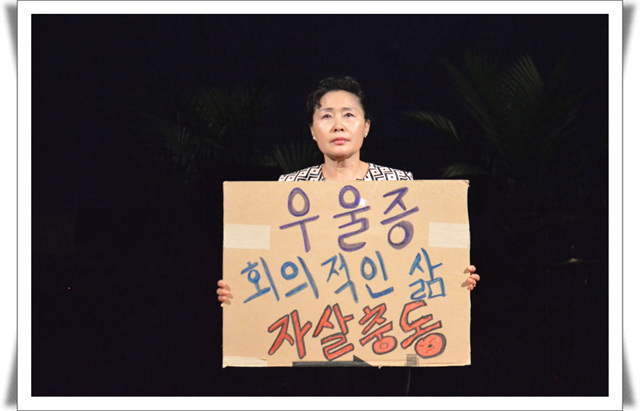 우울증
회의적인 삶
자살충동